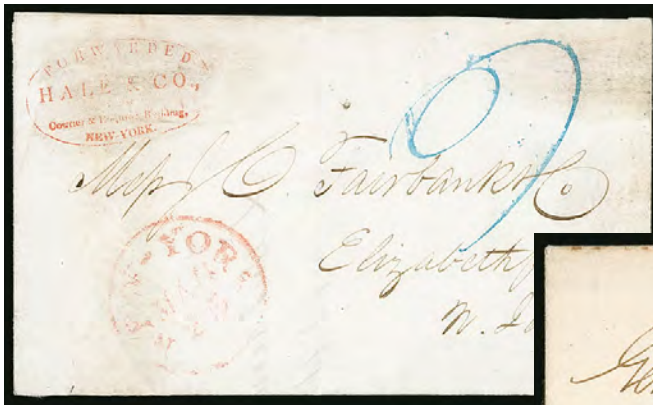 FORWARDED
HALE & CO.,
Courier & Enquirer Building,
NEW-YORK.
Mess J. C. Fairbanks & Co
Elizabeth
N. Je
NEW-YORK
MAR